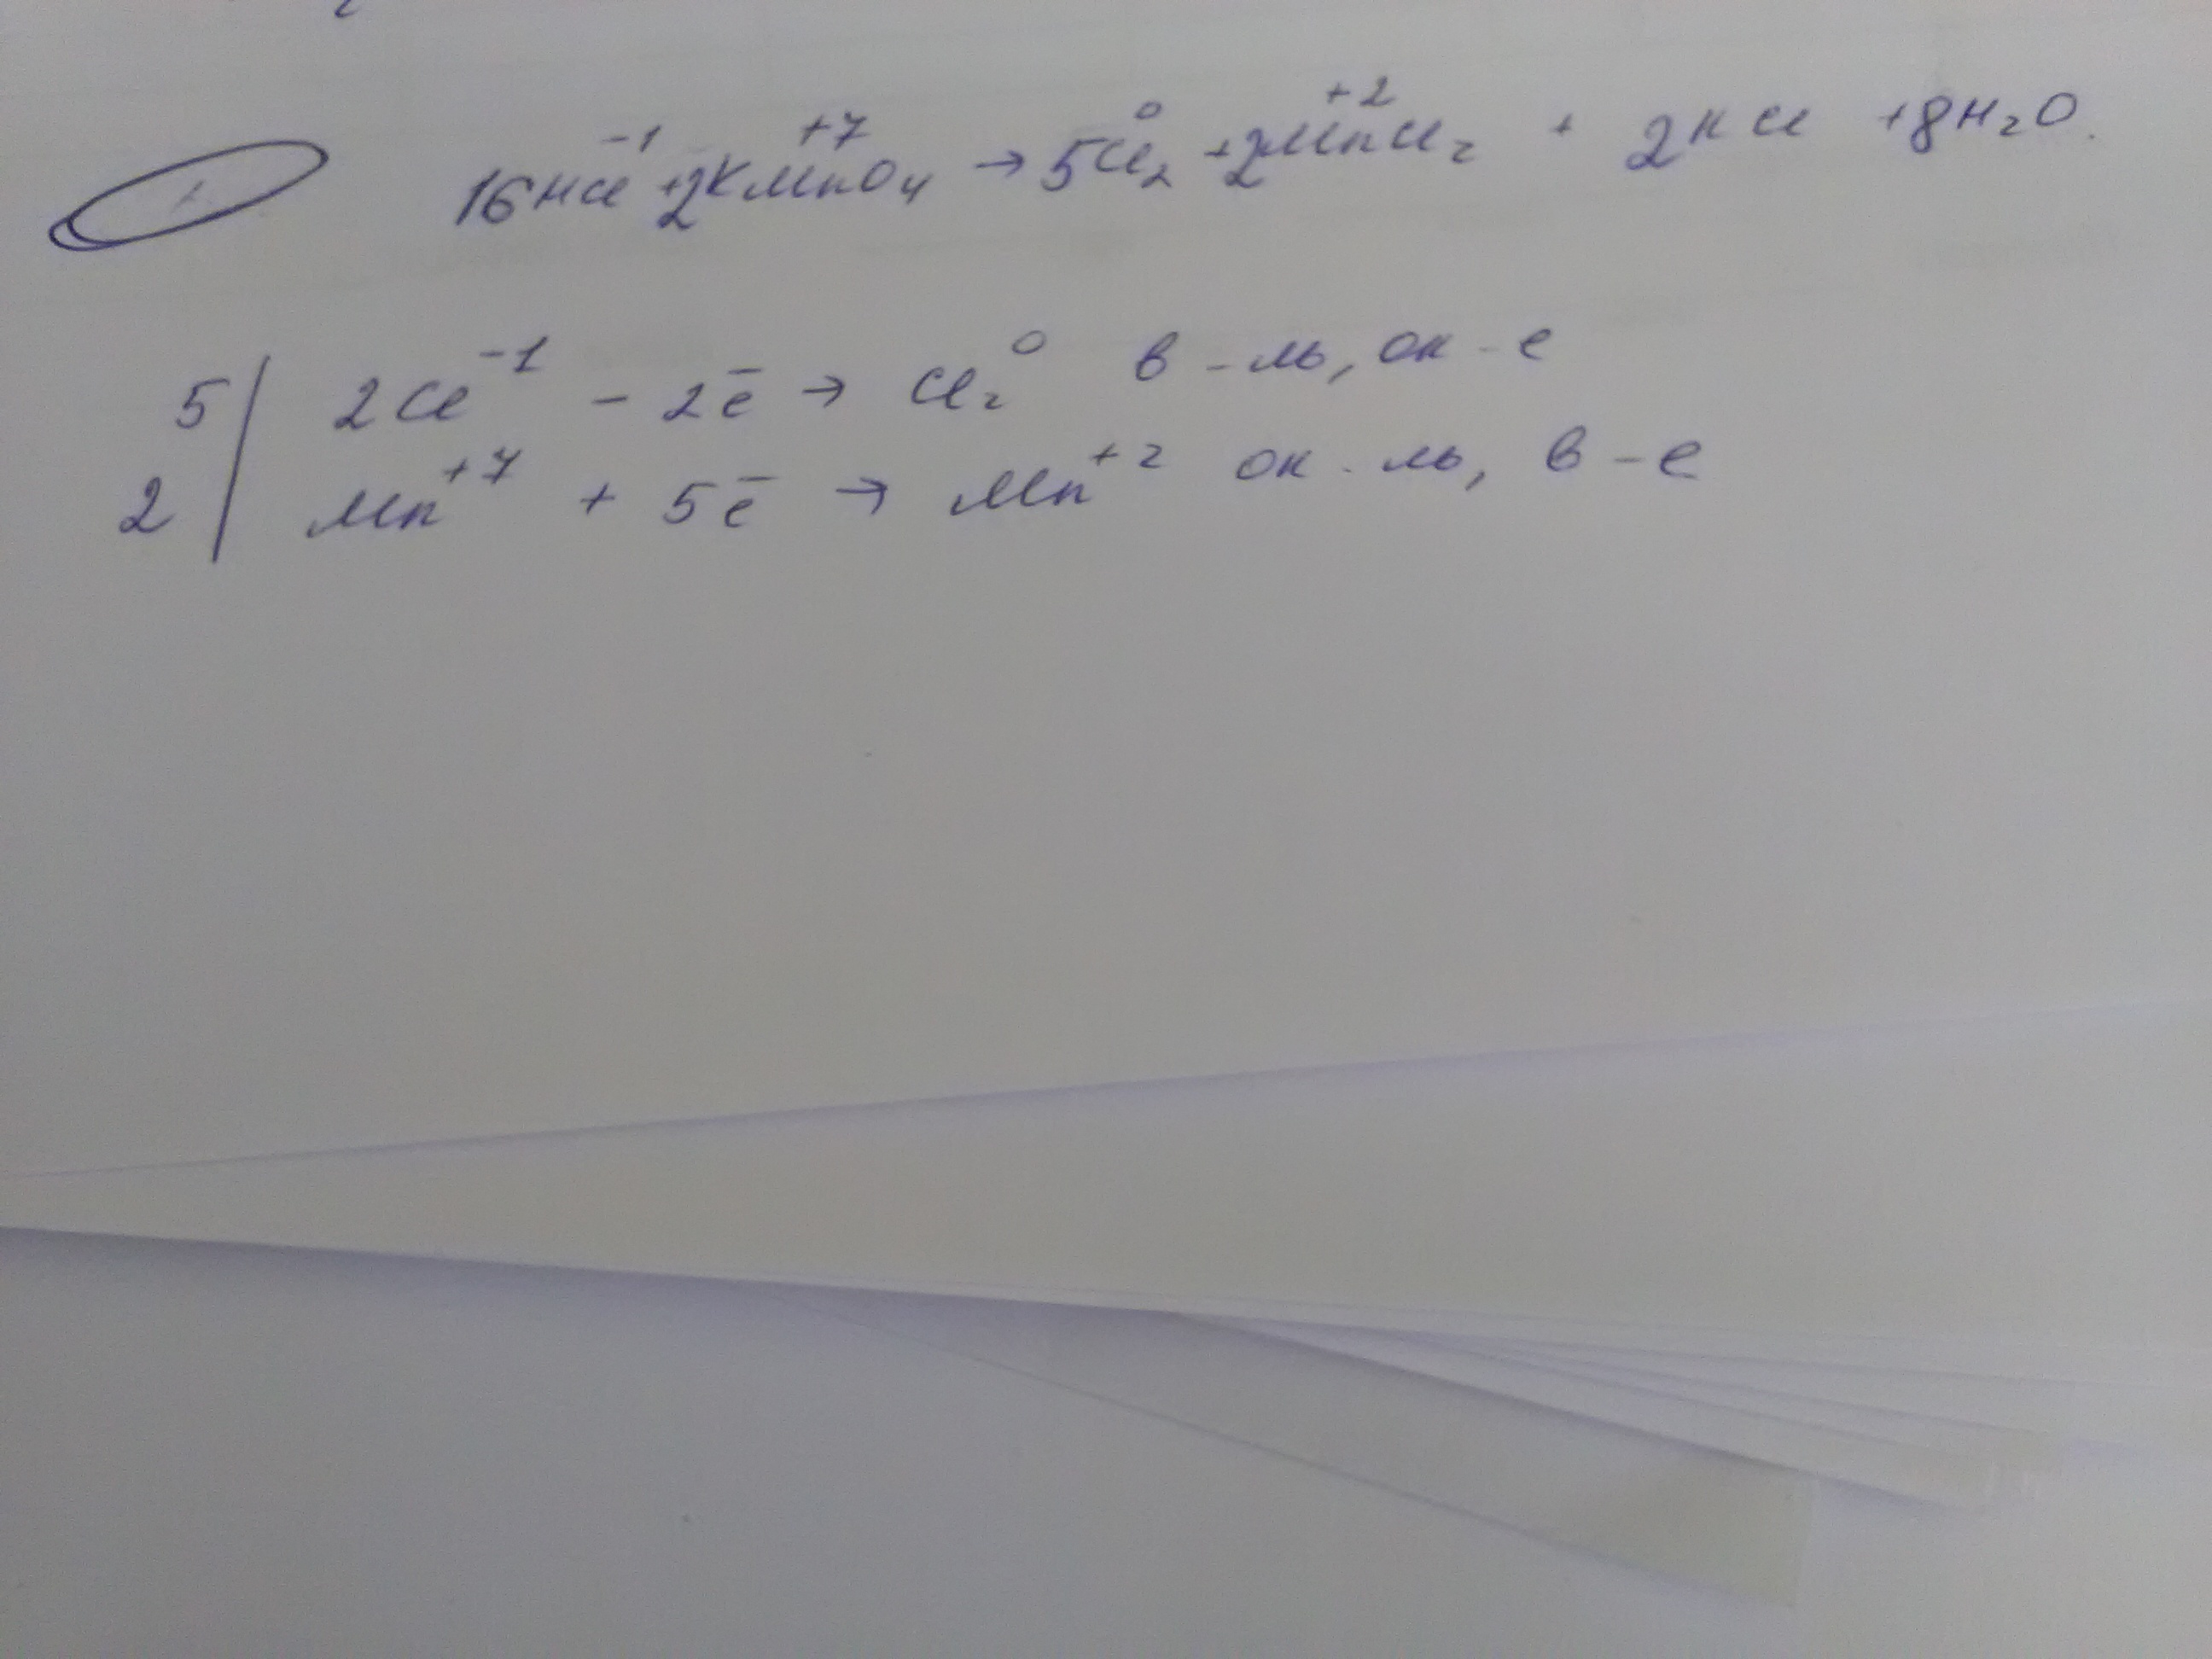 16HCl⁻¹ + 2KMn⁺⁷O₄ → 5Cl₂⁰ + 2Mn⁺²Cl₂ + 2KCl + 8H₂O.
5 | 2Cl⁻¹ - 2ē → Cl₂⁰ в-ль, ок-е
2 | Mn⁺⁷ + 5ē → Mn⁺² ок-ль, в-е